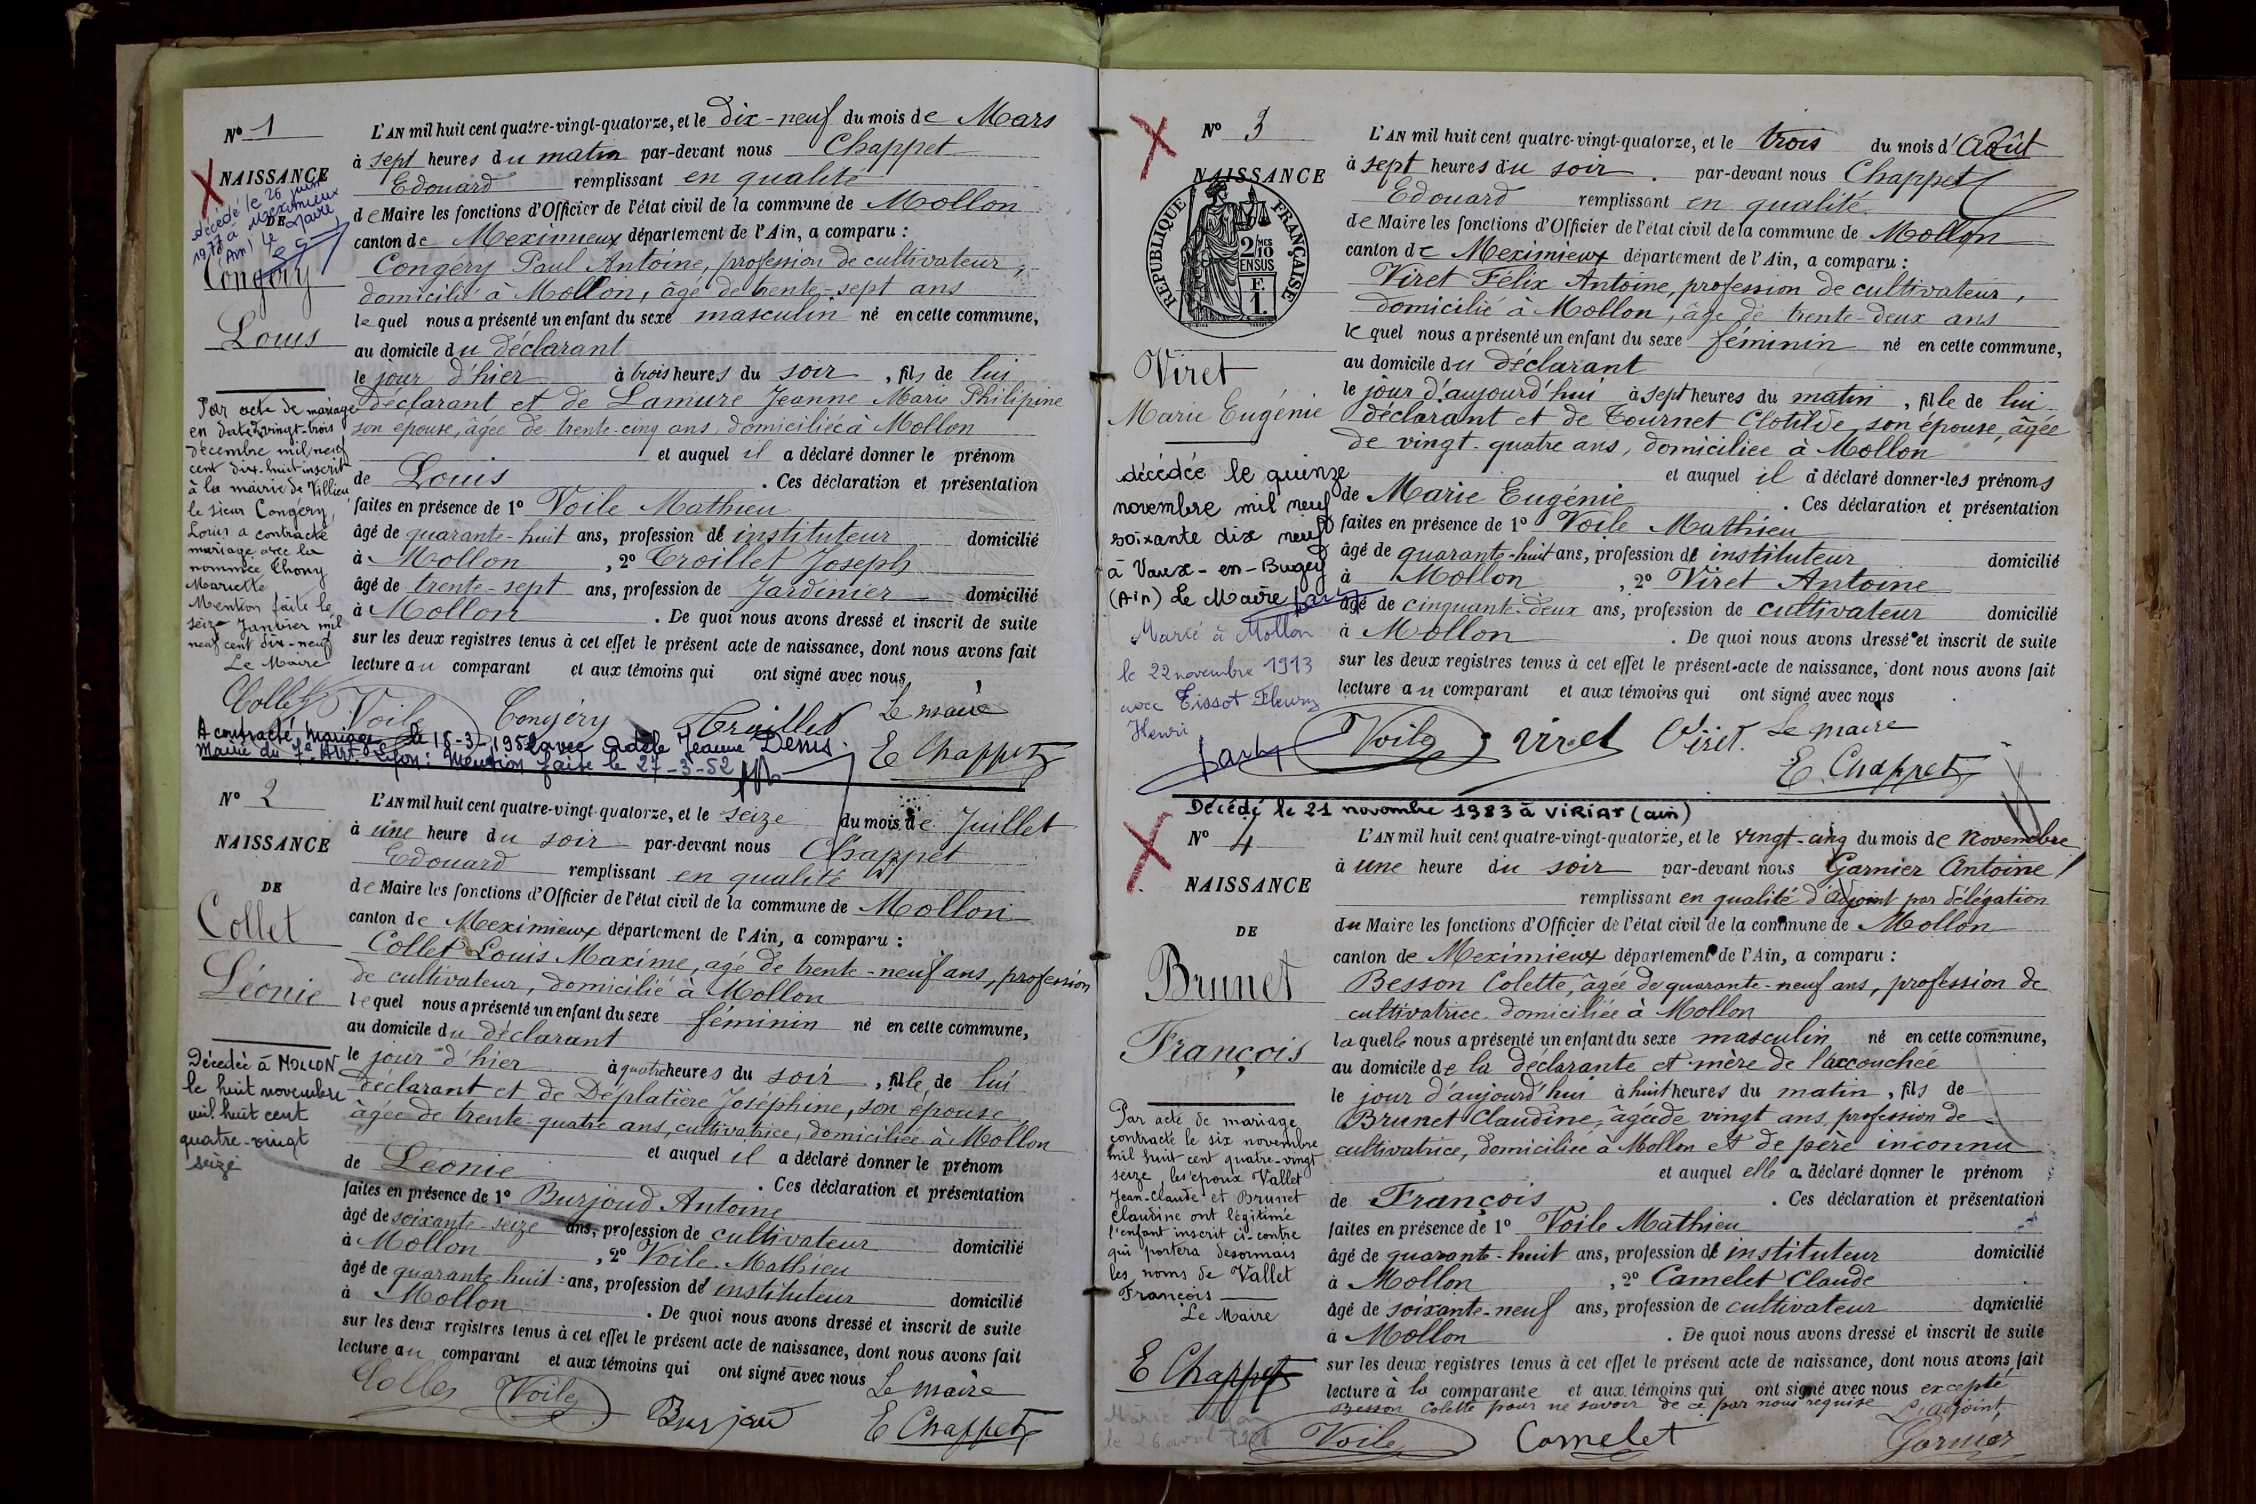 Nº 1
NAISSANCE
DE
Congéry
Louis
décédé le 26 juin
1977 à Meximieux
Ain) le Maire
Par acte de mariage
en date du vingt-trois
décembre mil neuf
cent dix-huit inscrit
à la mairie de Villieu
le sieur Congéry,
Louis a contracté
mariage avec la
nommée Thony
Mariette
Mention faite le
seize Janvier mil
neuf cent dix-neuf
Le Maire
L'AN mil huit cent quatre-vingt-quatorze, et le dix-neuf du mois de Mars
à sept heures du matin par-devant nous Chappet
Edouard remplissant en qualité
de Maire les fonctions d'Officier de l'état civil de la commune de Mollon
canton de Meximieux département de l'Ain, a comparu :
Congéry Paul Antoine, profession de cultivateur,
domicilié à Mollon, âgé de trente-sept ans
lequel nous a présenté un enfant du sexe masculin né en cette commune,
au domicile du déclarant
le jour d'hier à trois heures du soir, fils de lui
déclarant et de Lamure Jeanne Marie Philipine
son épouse, âgée de trente-cinq ans, domiciliée à Mollon
et auquel il a déclaré donner le prénom
de Louis. Ces déclaration et présentation
faites en présence de 1º Voile Mathieu
âgé de quarante-huit ans, profession d'instituteur domicilié
à Mollon, 2º Troillet Joseph
âgé de trente-sept ans, profession de Jardinier domicilié
à Mollon. De quoi nous avons dressé et inscrit de suite
sur les deux registres tenus à cet effet le présent acte de naissance, dont nous avons fait
lecture au comparant et aux témoins qui ont signé avec nous
Voile Congéry Troillet Le maire
E Chappet
A contracté mariage le 15-3-1952 avec Adèle Jeanne Denis.
Mairie du 7e Arrt Lyon: Mention faite le 27-3-52
Nº 2
NAISSANCE
DE
Collet
Léonie
Décédée à MOLLON
le huit novembre
mil huit cent
quatre-vingt
seize
L'AN mil huit cent quatre-vingt-quatorze, et le seize du mois de Juillet
à une heure du soir par-devant nous Chappet
Edouard remplissant en qualité
de Maire les fonctions d'Officier de l'état civil de la commune de Mollon
canton de Meximieux département de l'Ain, a comparu :
Collet Louis Maxime, agé de trente-neuf ans, profession
de cultivateur, domicilié à Mollon
lequel nous a présenté un enfant du sexe féminin né en cette commune,
au domicile du déclarant
le jour d'hier à quatre heures du soir, fille de lui
déclarant et de Déplatière Joséphine, son épouse,
âgée de trente-quatre ans, cultivatrice, domiciliée à Mollon
et auquel il a déclaré donner le prénom
de Léonie. Ces déclaration et présentation
faites en présence de 1º Burjoud Antoine
âgé de soixante-seize ans, profession de cultivateur domicilié
à Mollon, 2º Voile Mathieu
âgé de quarante-huit ans, profession d'instituteur domicilié
à Mollon. De quoi nous avons dressé et inscrit de suite
sur les deux registres tenus à cet effet le présent acte de naissance, dont nous avons fait
lecture au comparant et aux témoins qui ont signé avec nous
Collet Voile Burjoud Le maire
E Chappet
Nº 3
NAISSANCE
RÉPUBLIQUE FRANÇAISE
2/10MES
EN SUS
F.
1.
Viret
Marie Eugénie
décédée le quinze
novembre mil neuf
soixante dix neuf
à Vaux-en-Bugey
(Ain) Le Maire
Marié à Mollon
le 22 novembre 1913
avec Tissot Fleury
Henri
L'AN mil huit cent quatre-vingt-quatorze, et le trois du mois d'Août
à sept heures du soir. par-devant nous Chappet
Edouard remplissant en qualité
de Maire les fonctions d'Officier de l'état civil de la commune de Mollon
canton de Meximieux département de l'Ain, a comparu :
Viret Félix Antoine, profession de cultivateur,
domicilié à Mollon, âgé de trente-deux ans
lequel nous a présenté un enfant du sexe féminin né en cette commune,
au domicile du déclarant
le jour d'aujourd'hui à sept heures du matin, fille de lui
déclarant et de Tournet Clotilde, son épouse, âgée
de vingt-quatre ans, domiciliée à Mollon
et auquel il a déclaré donner les prénoms
de Marie Eugénie. Ces déclaration et présentation
faites en présence de 1º Voile Mathieu
âgé de quarante-huit ans, profession d'instituteur domicilié
à Mollon, 2º Viret Antoine
âgé de cinquante-deux ans, profession de cultivateur domicilié
à Mollon. De quoi nous avons dressé et inscrit de suite
sur les deux registres tenus à cet effet le présent acte de naissance, dont nous avons fait
lecture au comparant et aux témoins qui ont signé avec nous
Voile Viret Viret. Le maire
E Chappet
Décédé le 21 novembre 1983 à VIRIAT (ain)
Nº 4
NAISSANCE
DE
Brunet
François
Par acte de mariage
contracté le six novembre
mil huit cent quatre-vingt
seize, les époux Vallet
Jean-Claude et Brunet
Claudine ont légitimé
l'enfant inscrit ci-contre
qui portera désormais
les noms de Vallet
François
Le Maire
E Chappet
L'AN mil huit cent quatre-vingt-quatorze, et le vingt-cinq du mois de Novembre
à une heure du soir par-devant nous Garnier Antoine
remplissant en qualité d'adjoint par délégation
du Maire les fonctions d'Officier de l'état civil de la commune de Mollon
canton de Meximieux département de l'Ain, a comparu :
Besson Colette, âgée de quarante-neuf ans, profession de
cultivatrice domiciliée à Mollon
laquelle nous a présenté un enfant du sexe masculin né en cette commune,
au domicile de la déclarante et mère de l'accouchée
le jour d'aujourd'hui à huit heures du matin, fils de
Brunet Claudine, âgée de vingt ans, profession de
cultivatrice, domiciliée à Mollon et de père inconnu
et auquel elle a déclaré donner le prénom
de François. Ces déclaration et présentation
faites en présence de 1º Voile Mathieu
âgé de quarante-huit ans, profession d'instituteur domicilié
à Mollon, 2º Camelet Claude
âgé de soixante-neuf ans, profession de cultivateur domicilié
à Mollon. De quoi nous avons dressé et inscrit de suite
sur les deux registres tenus à cet effet le présent acte de naissance, dont nous avons fait
lecture à la comparante et aux témoins qui ont signé avec nous excepté
Besson Colette pour ne savoir de ce par nous requise L'adjoint,
Voile Camelet Garnier